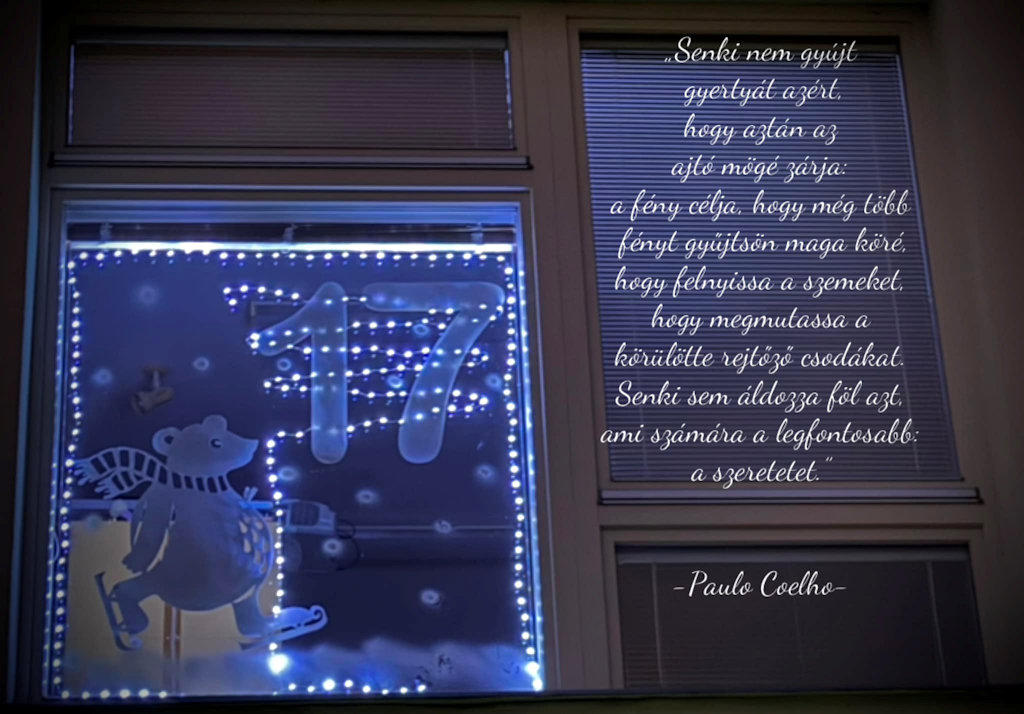 17
„Senki nem gyújt
gyertyát azért,
hogy aztán az
ajtó mögé zárja:
a fény célja, hogy még több
fényt gyűjtsön maga köré,
hogy felnyissa a szemeket,
hogy megmutassa a
körülötte rejtőző csodákat.
Senki sem áldozza föl azt,
ami számára a legfontosabb:
a szeretetet.”
-Paulo Coelho-